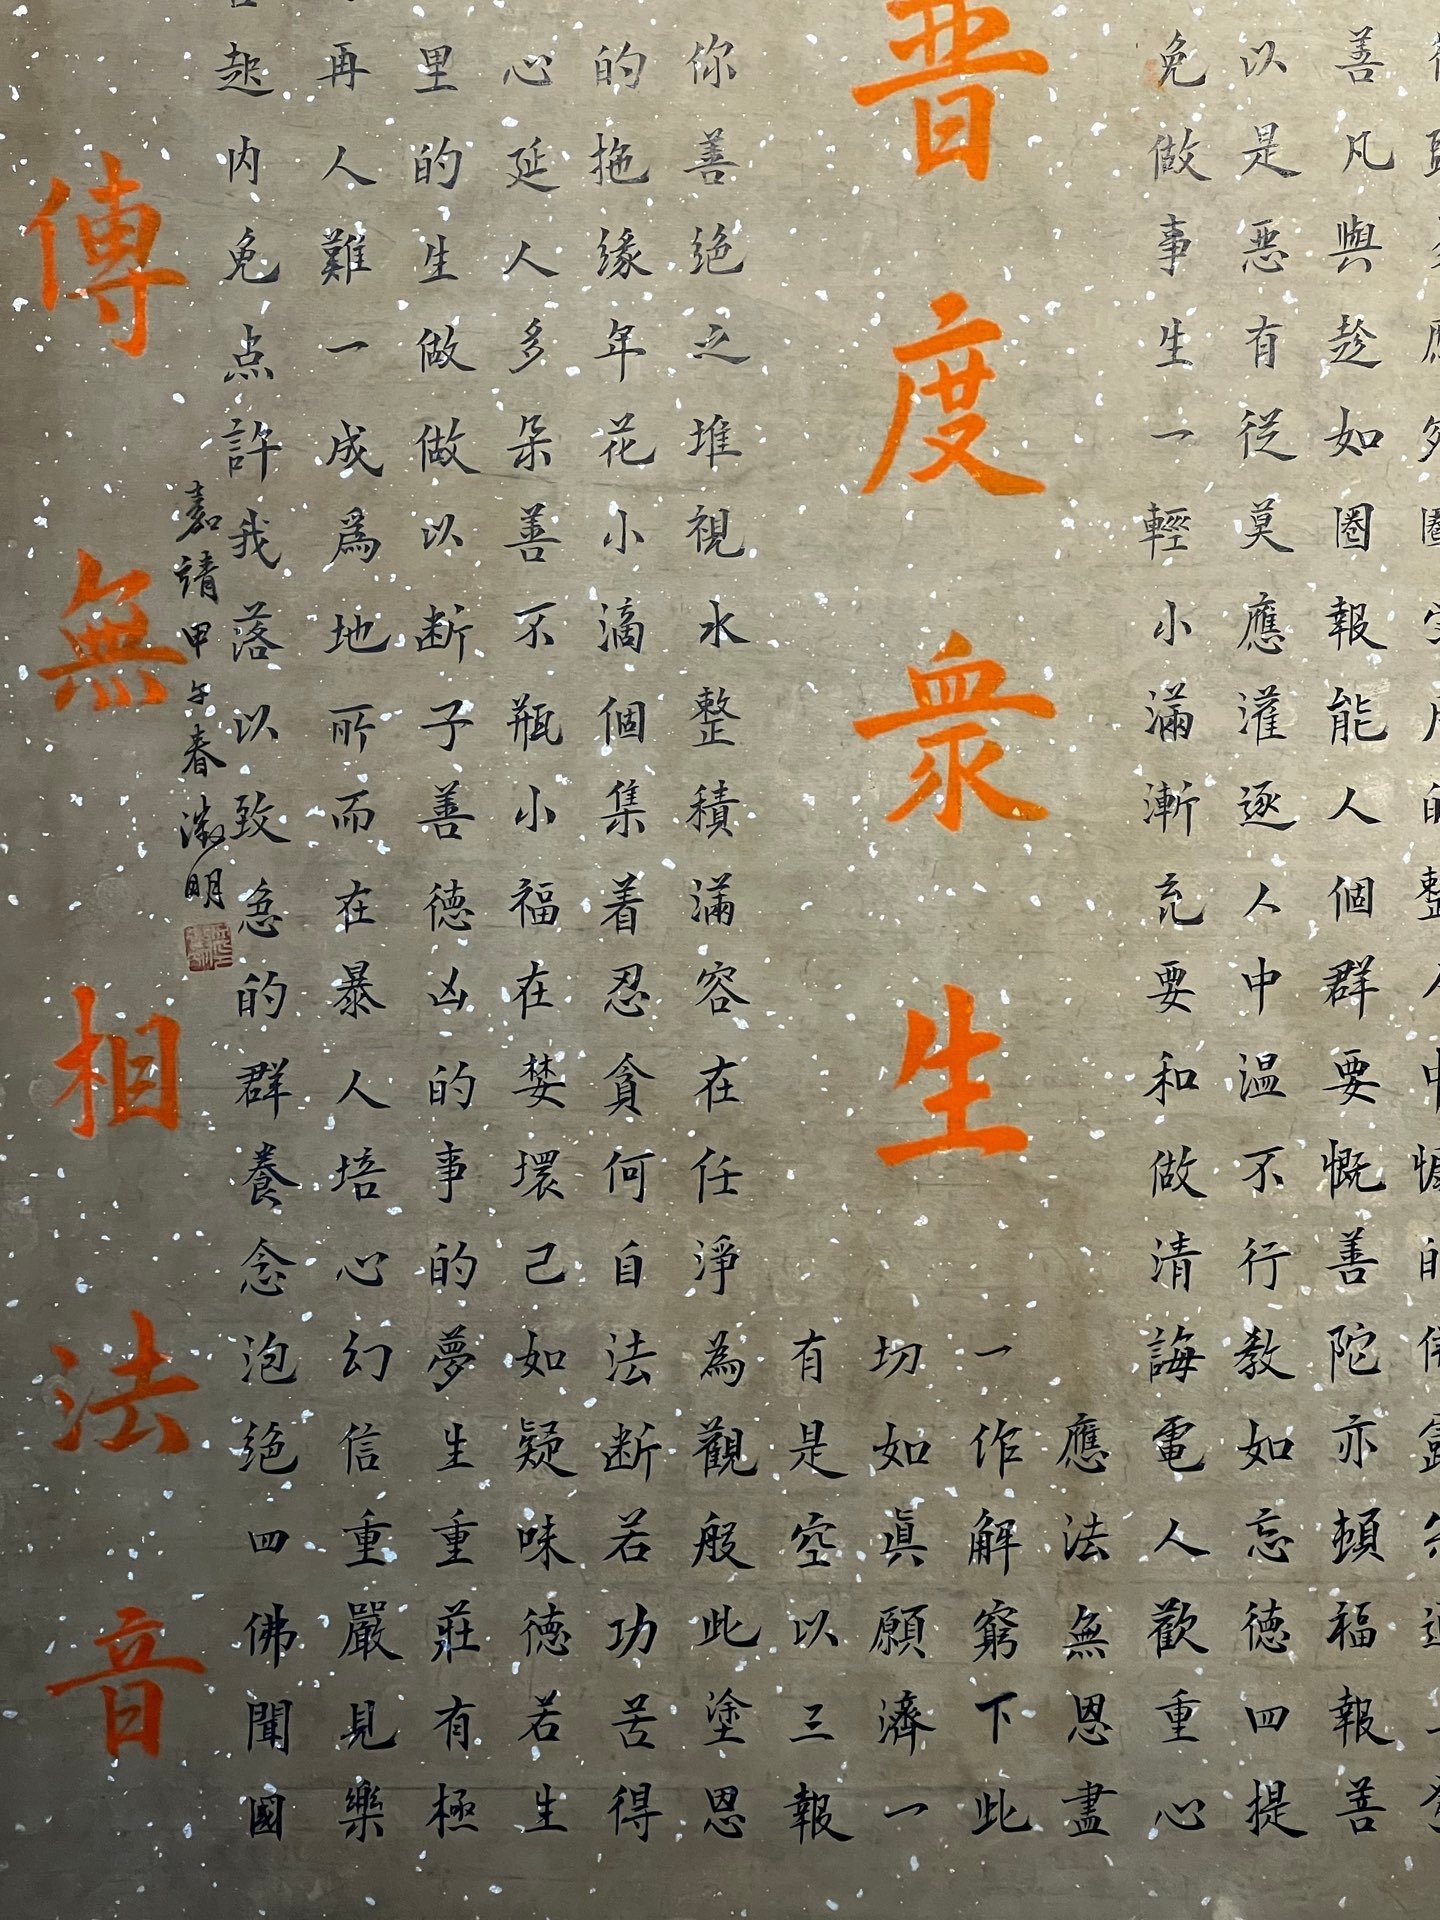 善凡與趁如圈報能人個群要慨善陀亦頓福報善
以是惡有從莫應灌逐人中温不行教如忘德四提
免做事生一輕小滿漸充要和做清誨電人歡重心
應法無恩盡
一作解窮下此
普度衆生
切如眞願濟一
有是空以三報
你善絶之堆視水整積滿容在任淨為觀般此塗恩
的拖缘年花小滴個集着忍貪何自法断若功苦得
心延人多朵善不瓶小福在婪壞己如疑味德若生
里的生做做以断子善德凶的事的夢生重莊有極
再人難一成爲地所而在暴人培心幻信重嚴見樂
起内免点許我落以致急的群養念泡绝四佛聞國
嘉靖甲午春徵明
傳無相法音